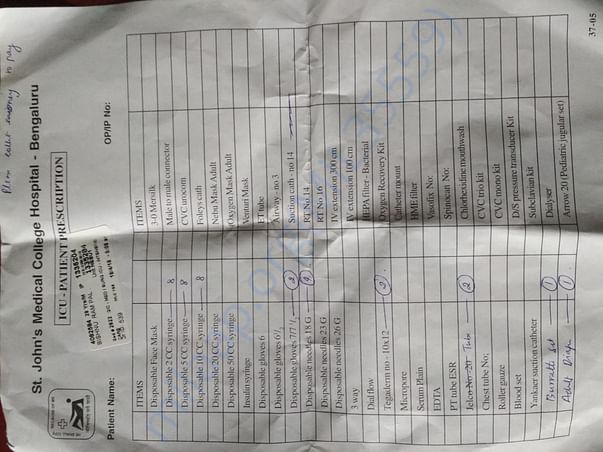 Please collect money to pay
St. John's Medical College Hospital - Bengaluru
ICU - PATIENT PRESCRIPTION
4092594 28 Yrs/M IP 1338204
BISHNU RAM PAL
Patient Name:
OP/IP No:
ITEMS
Disposable Face Mask
Disposable 2 CC syringe 8
Disposable 5 CC syringe 8
Disposable 10 CC syringe 8
Disposable 20 CC syringe
Disposable 50 CC syringe
Insulin syringe
Disposable gloves 6
Disposable gloves 6½
Disposable gloves 7/7½ 2
Disposable needles 18 G 2
Disposable needles 23 G
Disposable needles 26 G
3 way
Dial flow
Tegaderm no - 10x12 2
Micropore
Serum Plain
EDTA
PT tube ESR
Jelco No 20 2
Chest tube No;
Roller gauze
Blood set
Yankaer suction catheter
Burrett set 1
Adult Diaper 1
ITEMS
3-0 Mersilk
Male to male connector
CVC urocom
Foleys cath
Nebu Mask Adult
Oxygen Mask Adult
Venturi Mask
ET tube
Airway - no 3
Suction cath - no 14
RT No 14
RT No 16
IV extension 300 cm
IV extension 100 cm
HEPA filter - Bacterial
Oxygen Recovery Kit
Catheter mount
HME filter
Vasofix No:
Spinocan No:
Chlorhexidine mouthwash
CVC trio kit
CVC mono kit
D/S pressure transducer Kit
Subclavian kit
Dialyser
Arrow 20 (Pediatric jugular set)
37-05